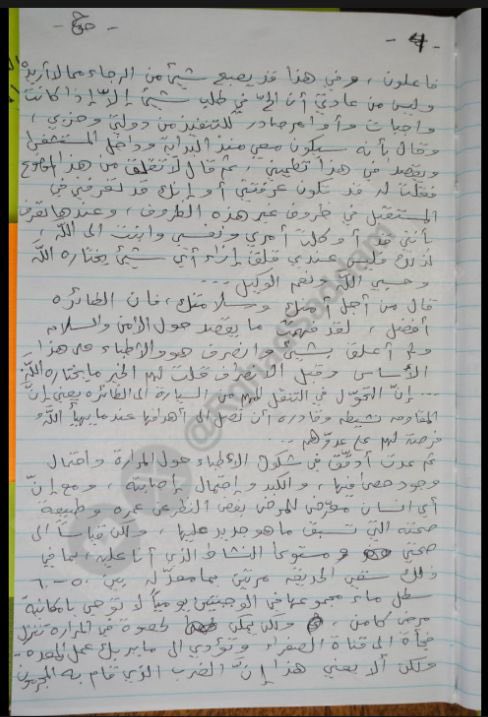 - 4 -
فاعلون، وفي هذا قد يضيع شيئ من الرجاء مما لا أريده
وليس من عادتي أن ألحّ في طلب شيئ إلّا إذا كانت
واجبات وأوامر صادر للتنفيذ من دولتي وحزبي،
وقال بأنه سيكون معي منذ البداية وداخل المستشفى
ويقصد من هذا تطميني، ثم قال لا تقلق من هذا
فقلت له قد تكون عرفتني أو إنك قد تعرفني في
المستقبل في ظروف غير هذه الظروف، وعندها تعرف
بأنني قد أوكلت أمري ونفسي وابنت الى اللّه،
لذلك فليس عندي قلق إزاء أي شيئ يختاره اللّه
وحسبي اللّه ونعم الوكيل ...
قال من أجل أمنك وسلامتك، فان الطائره
أفضل، لقد فهمت ما يقصد حول الأمن والسلام
ولم أعلق بشيئ وانصرف هو والأطباء على هذا
الأساس وقبل الانصراف قلت لهم الخير ما يختاره اللّه
... إنّ التحوّل في التنقل لهم من السيارة الى الطائره يعني إنّ
المقاومه نشيطه وقادره أن تصل الى أهدافها عندما يهيأ اللّه
فرصة لهم على عدوّهم ...
ثم عدت أدقّق في شكوك الأطباء حول المرارة واحتمال
وجود حصى فيها، والكبد وإحتمال إصابته، ومع إنّ
أي انسان معرّض للمرض بغض النظر عن عمره وطبيعة
صحته التي تسبق ما هو جديد عليها ولكن قياساً الى
صحتي ومستوى النشاط الذي أنا عليه، بما في
ذلك سقي الحديقه مرتين بما معدّله بين ٥٠ - ٦٠
سطل ماء مجموعها في الوجبتين يومياً لا توحي بامكانية
مرض كامن، ولكن يمكن لحصوة في المرارة تنزل
فجأة الى قناة الصفراء وتؤدي الى ما يربك عمل المعده
ولكن ألا يعني هذا إنّ الضرب الذي قام به المجرمون